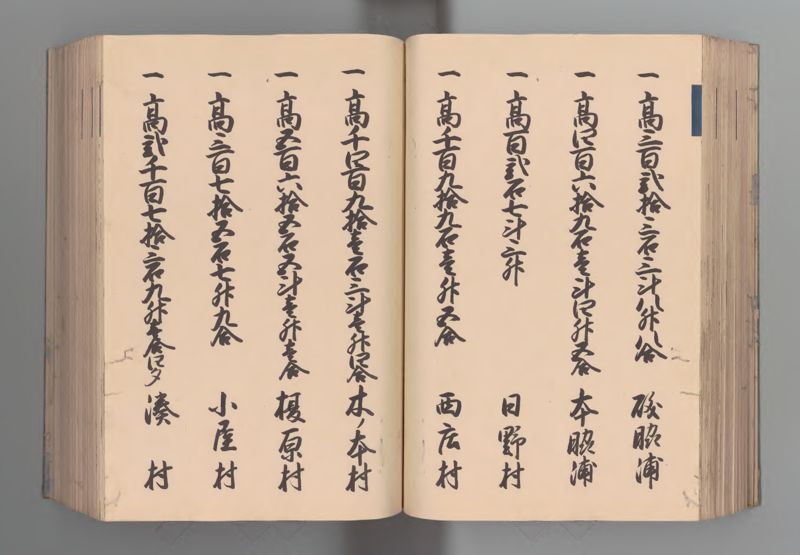 一 高三百弐拾三石三斗八升八合 磯脇浦
一 高四百六拾九石壱斗四升五合 本脇浦
一 高百弐石七斗二升 日野村
一 高千百九拾九石壱升五合 西庄村
一 高千四百九拾壱石三斗壱升四合 木ノ本村
一 高五百六拾五石五斗壱升壱合 榎原村
一 高三百七拾五石七升九合 小屋村
一 高弐千百七拾二石九升壱合四夕 湊村